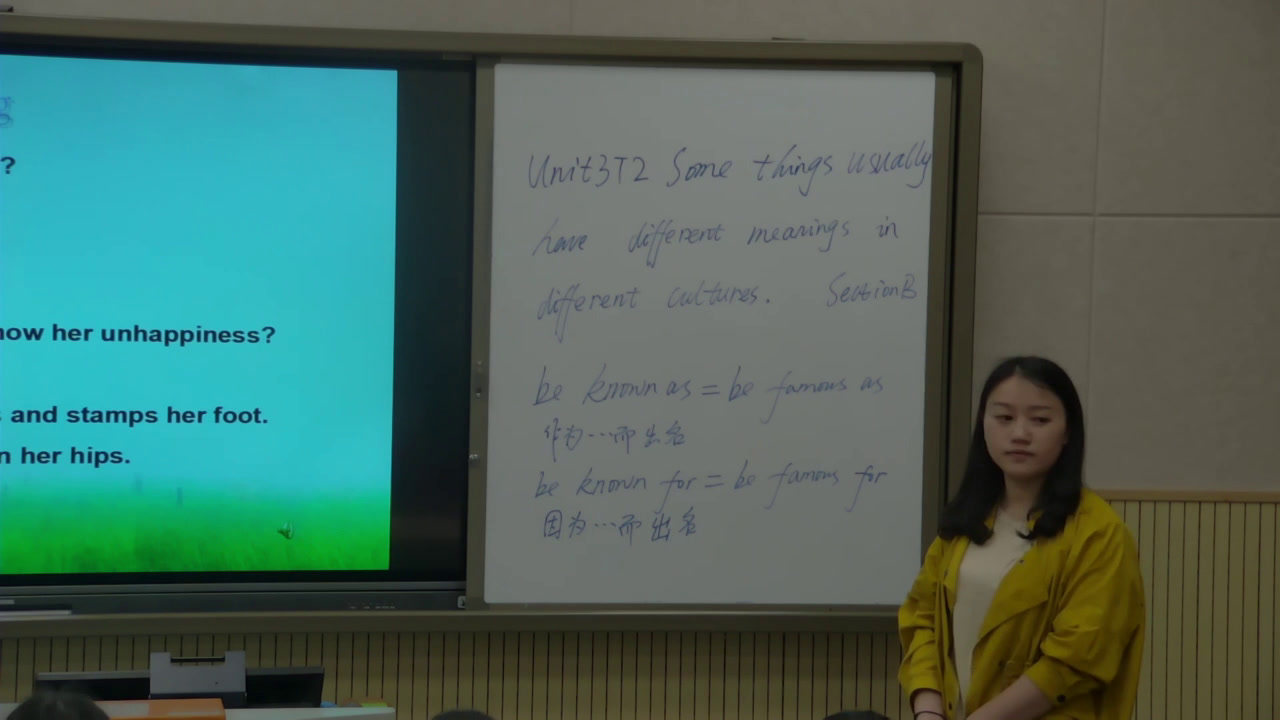 ?
now her unhappiness?
and stamps her foot.
n her hips.
Unit3T2 Some things usually
have different meanings in
different cultures. SectionB
be known as = be famous as
作为…而出名
be known for = be famous for
因为…而出名